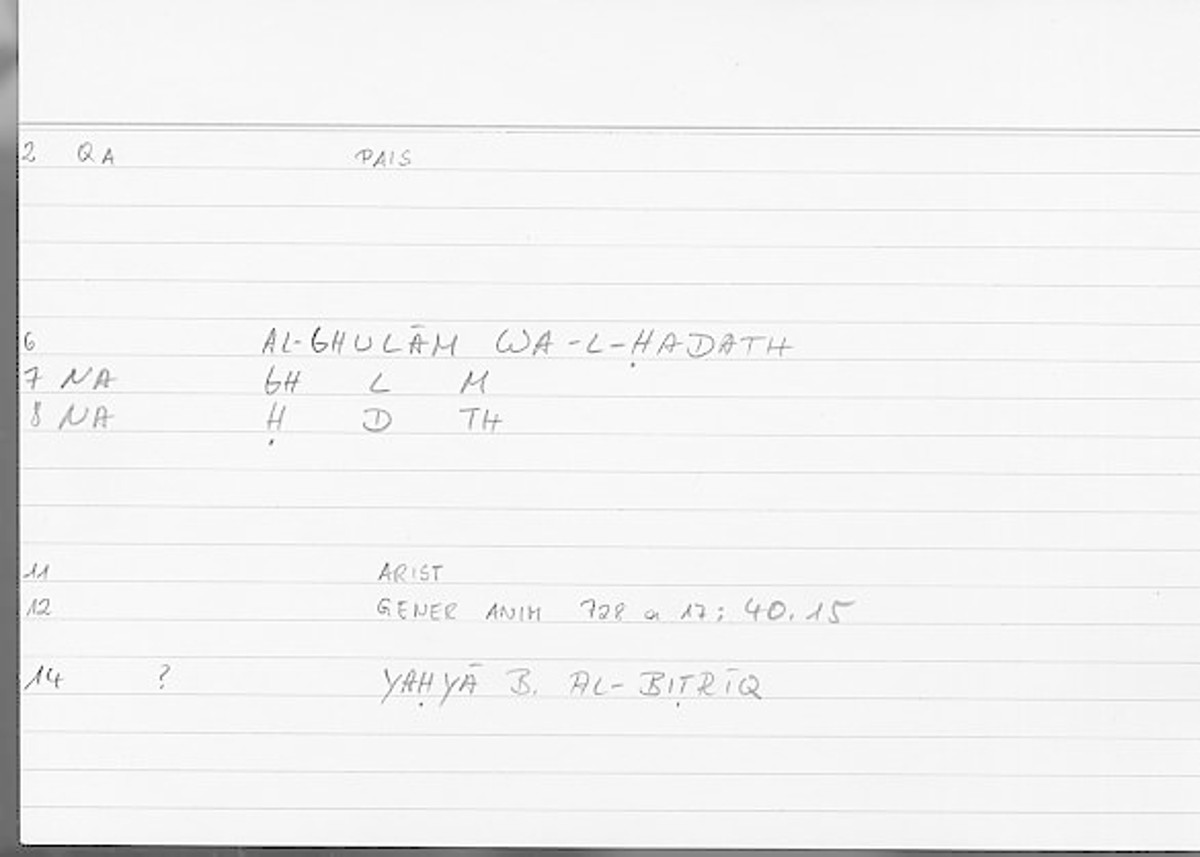 2 QA PAIS
6 AL-GHULĀM WA-L-ḤADATH
7 NA GH L M
8 NA Ḥ D TH
11 ARIST
12 GENER ANIM 728 a 17; 40.15
14 ? YAḤYĀ B. AL-BIṬRĪQ